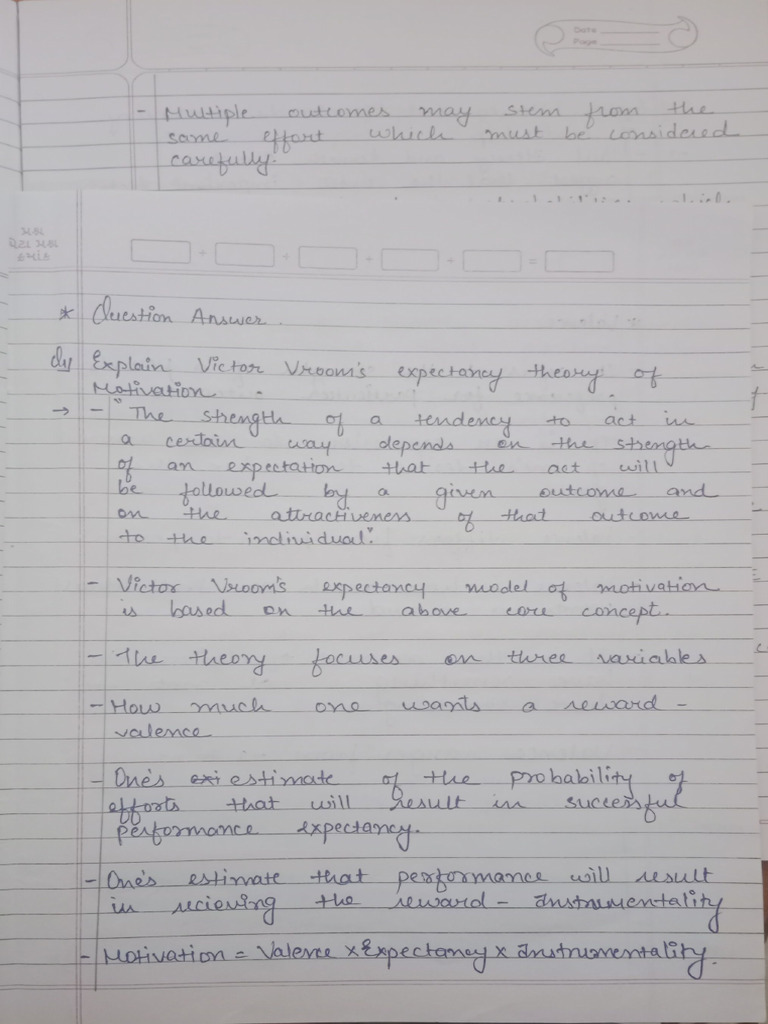 Date
Page
- Multiple outcomes may stem from the
same effort which must be considered
carefully.
+ + + + =
* Question Answer.
Q1) Explain Victor Vroom's expectancy theory of
Motivation.
→ - "The strength of a tendency to act in
a certain way depends on the strength
of an expectation that the act will
be followed by a given outcome and
on the attractiveness of that outcome
to the individual".
- Victor Vroom's expectancy model of motivation
is based on the above core concept.
- The theory focuses on three variables
- How much one wants a reward -
valence
- One's estimate of the probability of
efforts that will result in successful
performance expectancy.
- One's estimate that performance will result
in recieving the reward - Instrumentality
- Motivation = Valence x Expectancy x Instrumentality.